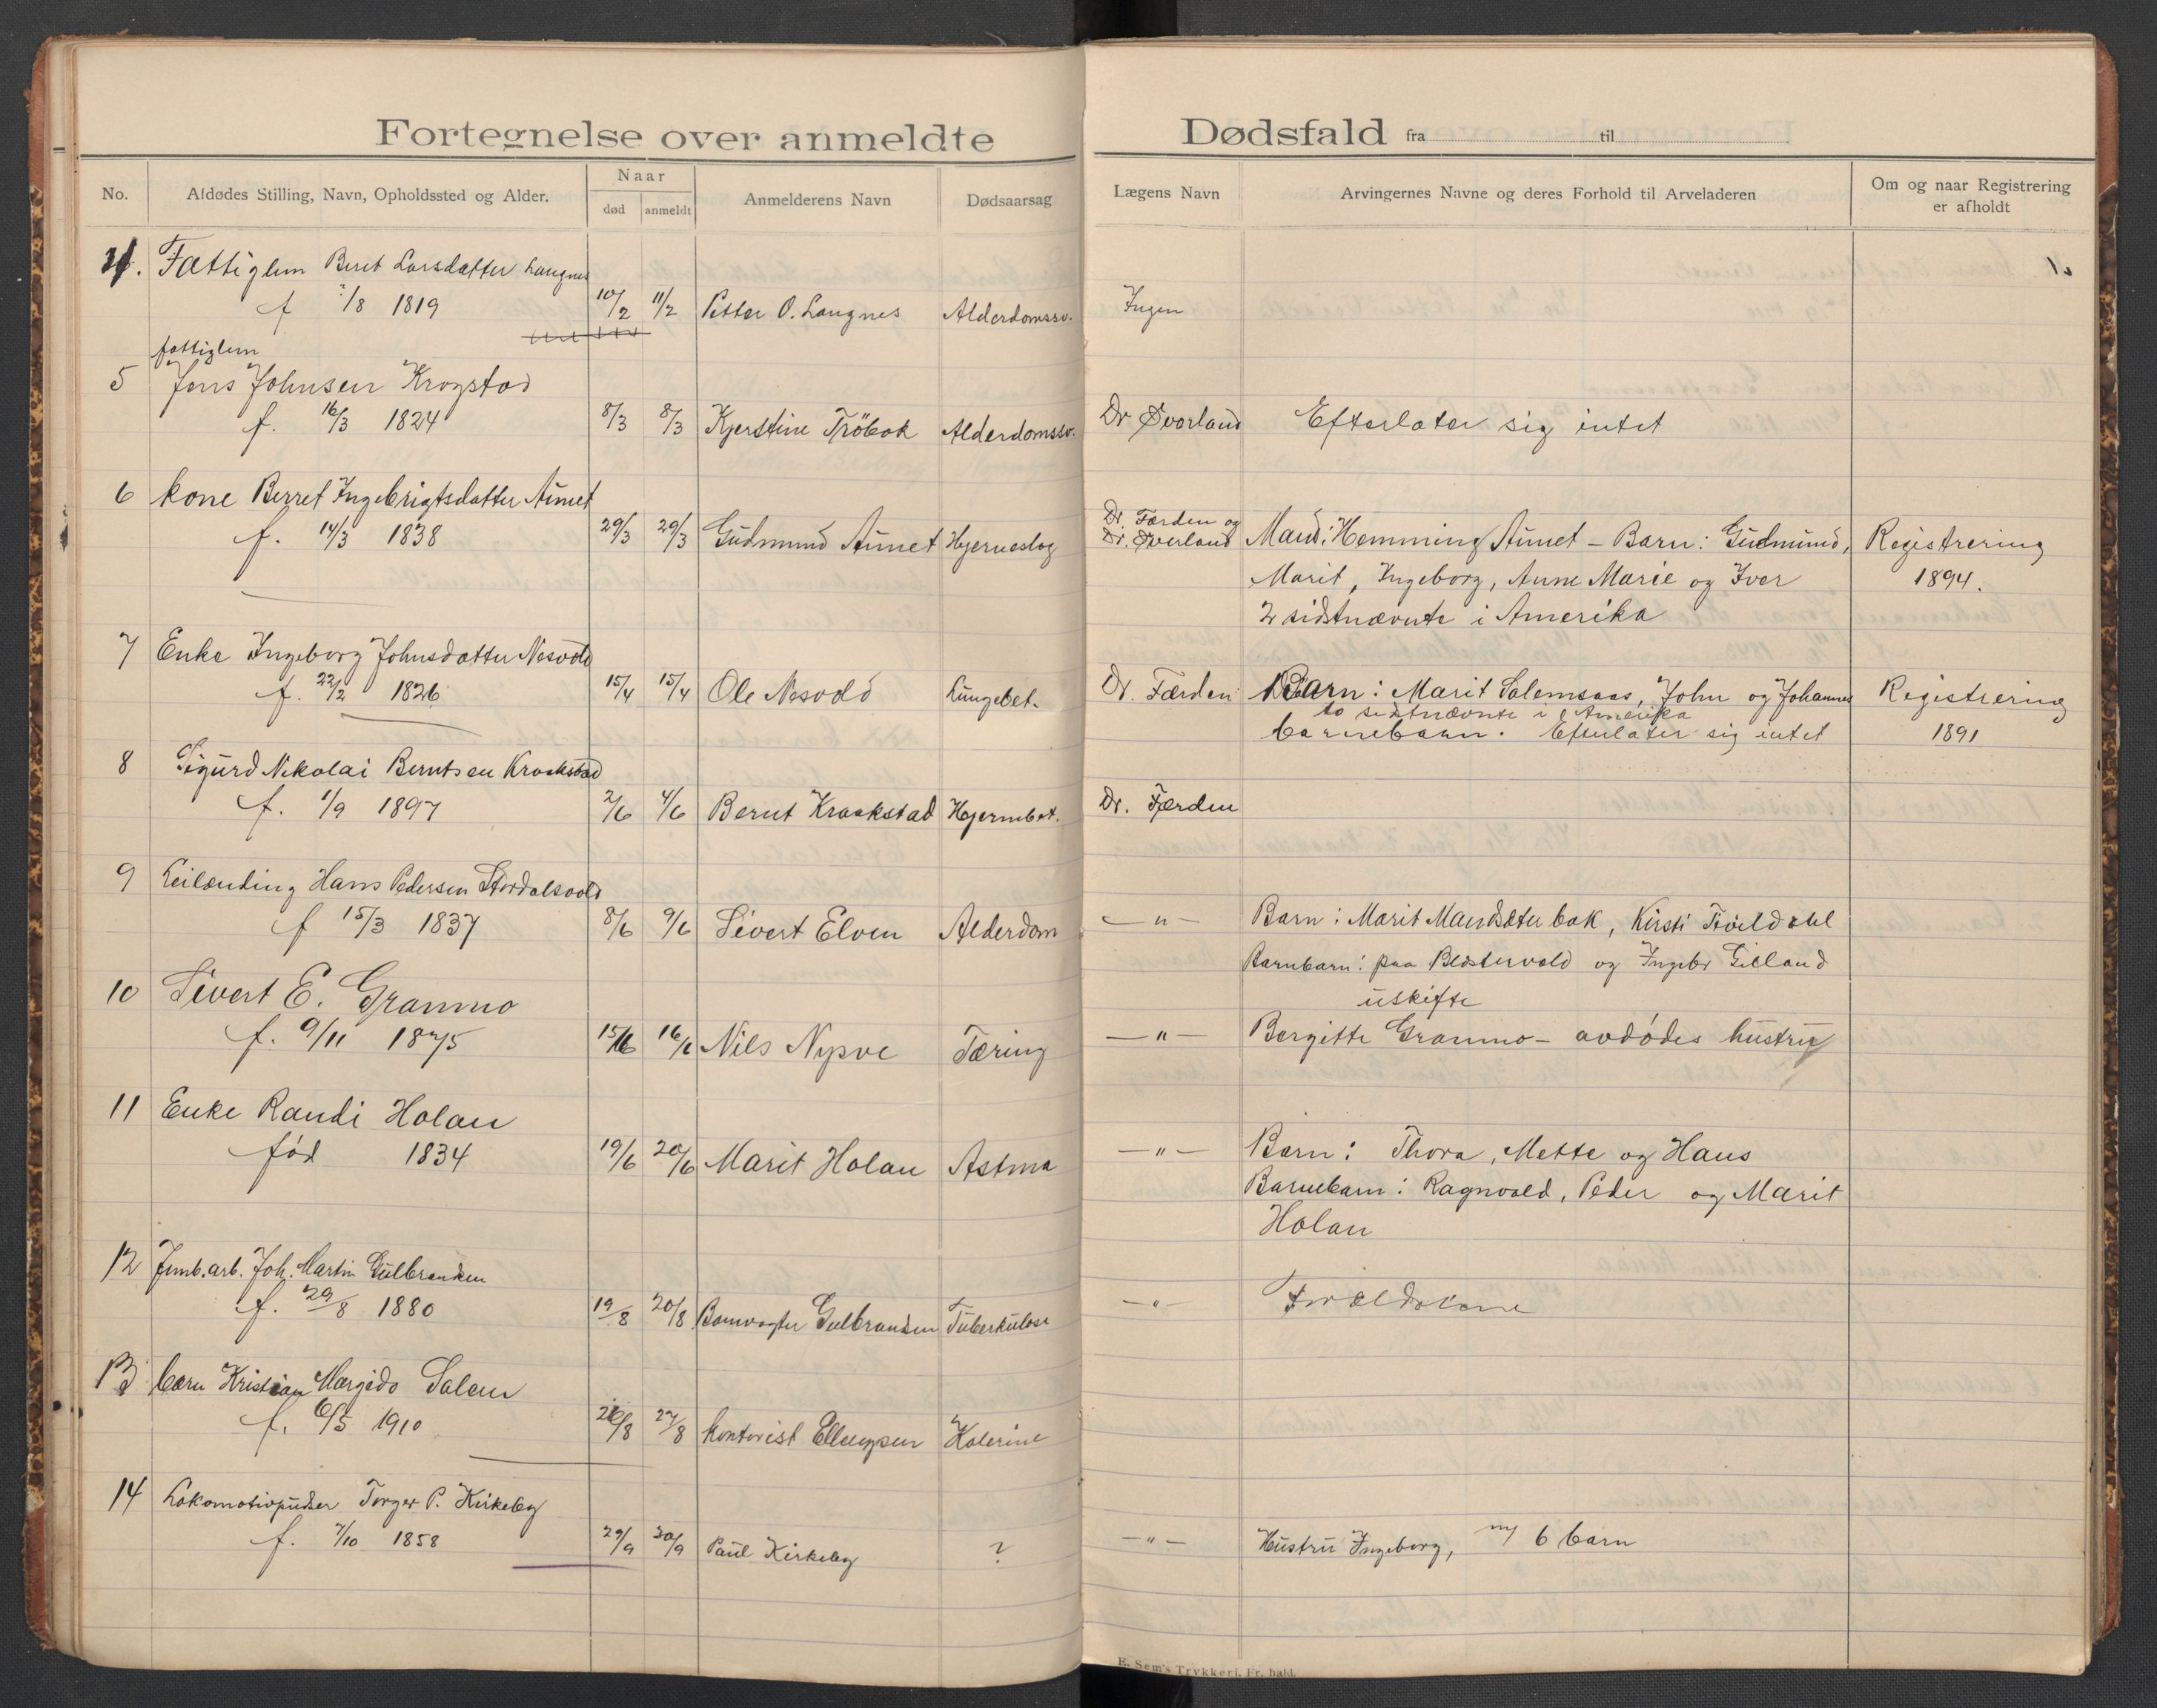 Fortegnelse over anmeldte Dødsfald fra til
No. Afdødes Stilling, Navn, Opholdssted og Alder. Naar død anmeldt Anmelderens Navn Dødsaarsag Lægens Navn Arvingernes Navne og deres Forhold til Arveladeren Om og naar Registrering er afholdt
4. Fattiglem Beret Larsdatter Langnes
f /8 1819 10/2 11/2 Petter O. Langnes Alderdomssv. Ingen
fattiglem
5 Jens Johnsen Krogstad
f. 16/3 1824 8/3 8/3 Kjerstine Tröbak Alderdomssv. Dr Øverland Efterlater sig intet
6 kone Berret Ingebrigtsdatter Aunet
f. 14/3 1838 29/3 29/3 Gudmund Aunet Hjerneslag Dr. Færden og Dr. Øverland Mand: Hemming Aunet - Barn: Gudmund, Registrering
Marit, Ingeborg, Anne Marie og Iver 1894.
2 sidstnævnte i Amerika
7 Enke Ingeborg Johnsdatter Nesvold
f. 22/2 1826 15/4 15/4 Ole Nesvold Lungebet. Dr. Færden Barn: Marit Salemsaas, John og Johannes Registrering
to sidstnævnte i Amerika
barnebarn. Efterlater sig intet 1891
8 Sigurd Nikolai Berntsen Kraakstad
f. 1/9 1897 2/6 4/6 Bernt Kraakstad Hjernebet. Dr. Færden
9 Leilending Hans Pedersen Stordalsvold
f 15/3 1837 8/6 9/6 Sivert Elven Alderdom —"— Barn: Marit Mandsæterbak, Kirsti
Barnbarn: paa og
uskifte
10 Sivert E. Granmo
f. 9/11 1875 15/6 16/6 Nils Nypve Tæring —"— Bergitte Granmo - avdødes hustru
11 Enke Randi Holan
fød 1834 19/6 20/6 Marit Holan Astma —"— Barn: Thora, Mette og Hans
Barnebarn: Ragnvald, Peder og Marit
Holan
12 Jernb.arb. Joh. Martin Gulbrandsen
f. 29/8 1880 19/8 20/8 Banevogter Gulbrandsen Tuberkulose —"— Forældrene
13 barn Kristian Margido Salen
f. 6/5 1910 26/8 27/8 kontorist Ellingsen Kolerine
14 Lokomotivpudser Torger P. Kirkeby
f. 7/10 1858 29/9 30/9 Paul Kirkeby ? —"— Hustru Ingeborg, 6 barn
E. Sem's Trykkeri, Fr. hald.